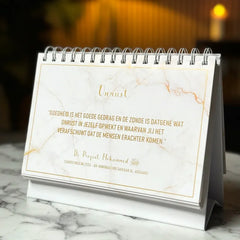 Onrust
"GOEDHEID IS HET GOEDE GEDRAG EN DE ZONDE IS DATGENE WAT
ONRUST IN JEZELF OPWEKT EN WAARVAN JIJ HET
VERAFSCHUWT DAT DE MENSEN ERACHTER KOMEN."
De Profeet Mohammed ﷺ